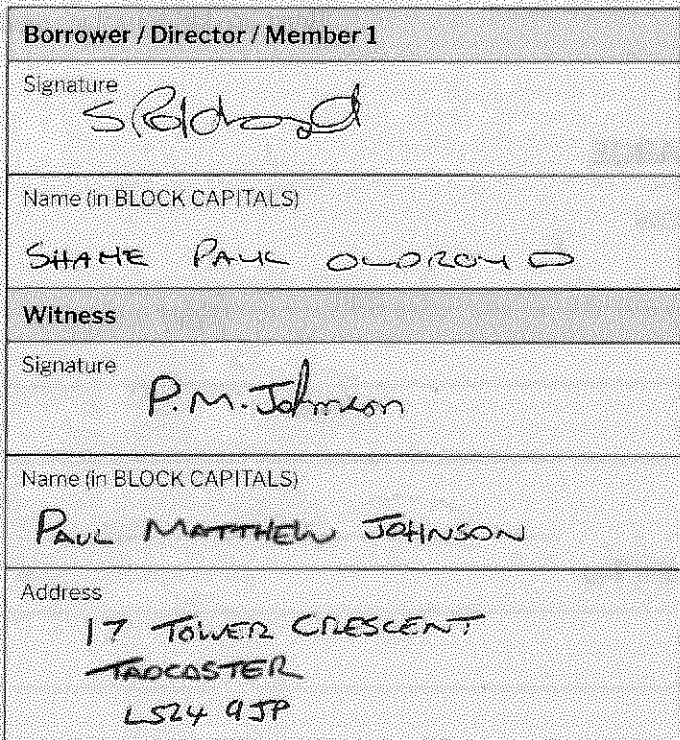 Borrower / Director / Member 1
Signature
Name (in BLOCK CAPITALS)
SHANE PAUL OLDROYD
Witness
Signature
P.M. Johnson
Name (in BLOCK CAPITALS)
PAUL MATTHEW JOHNSON
Address
17 TOWER CRESCENT
TADCASTER
LS24 9JP